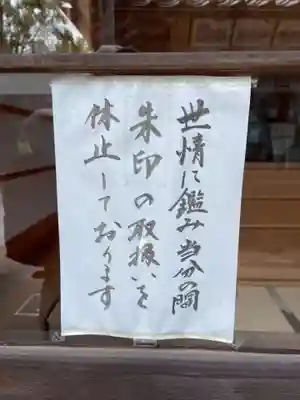 世情に鑑み当分の間
朱印の取扱いを
休止しております